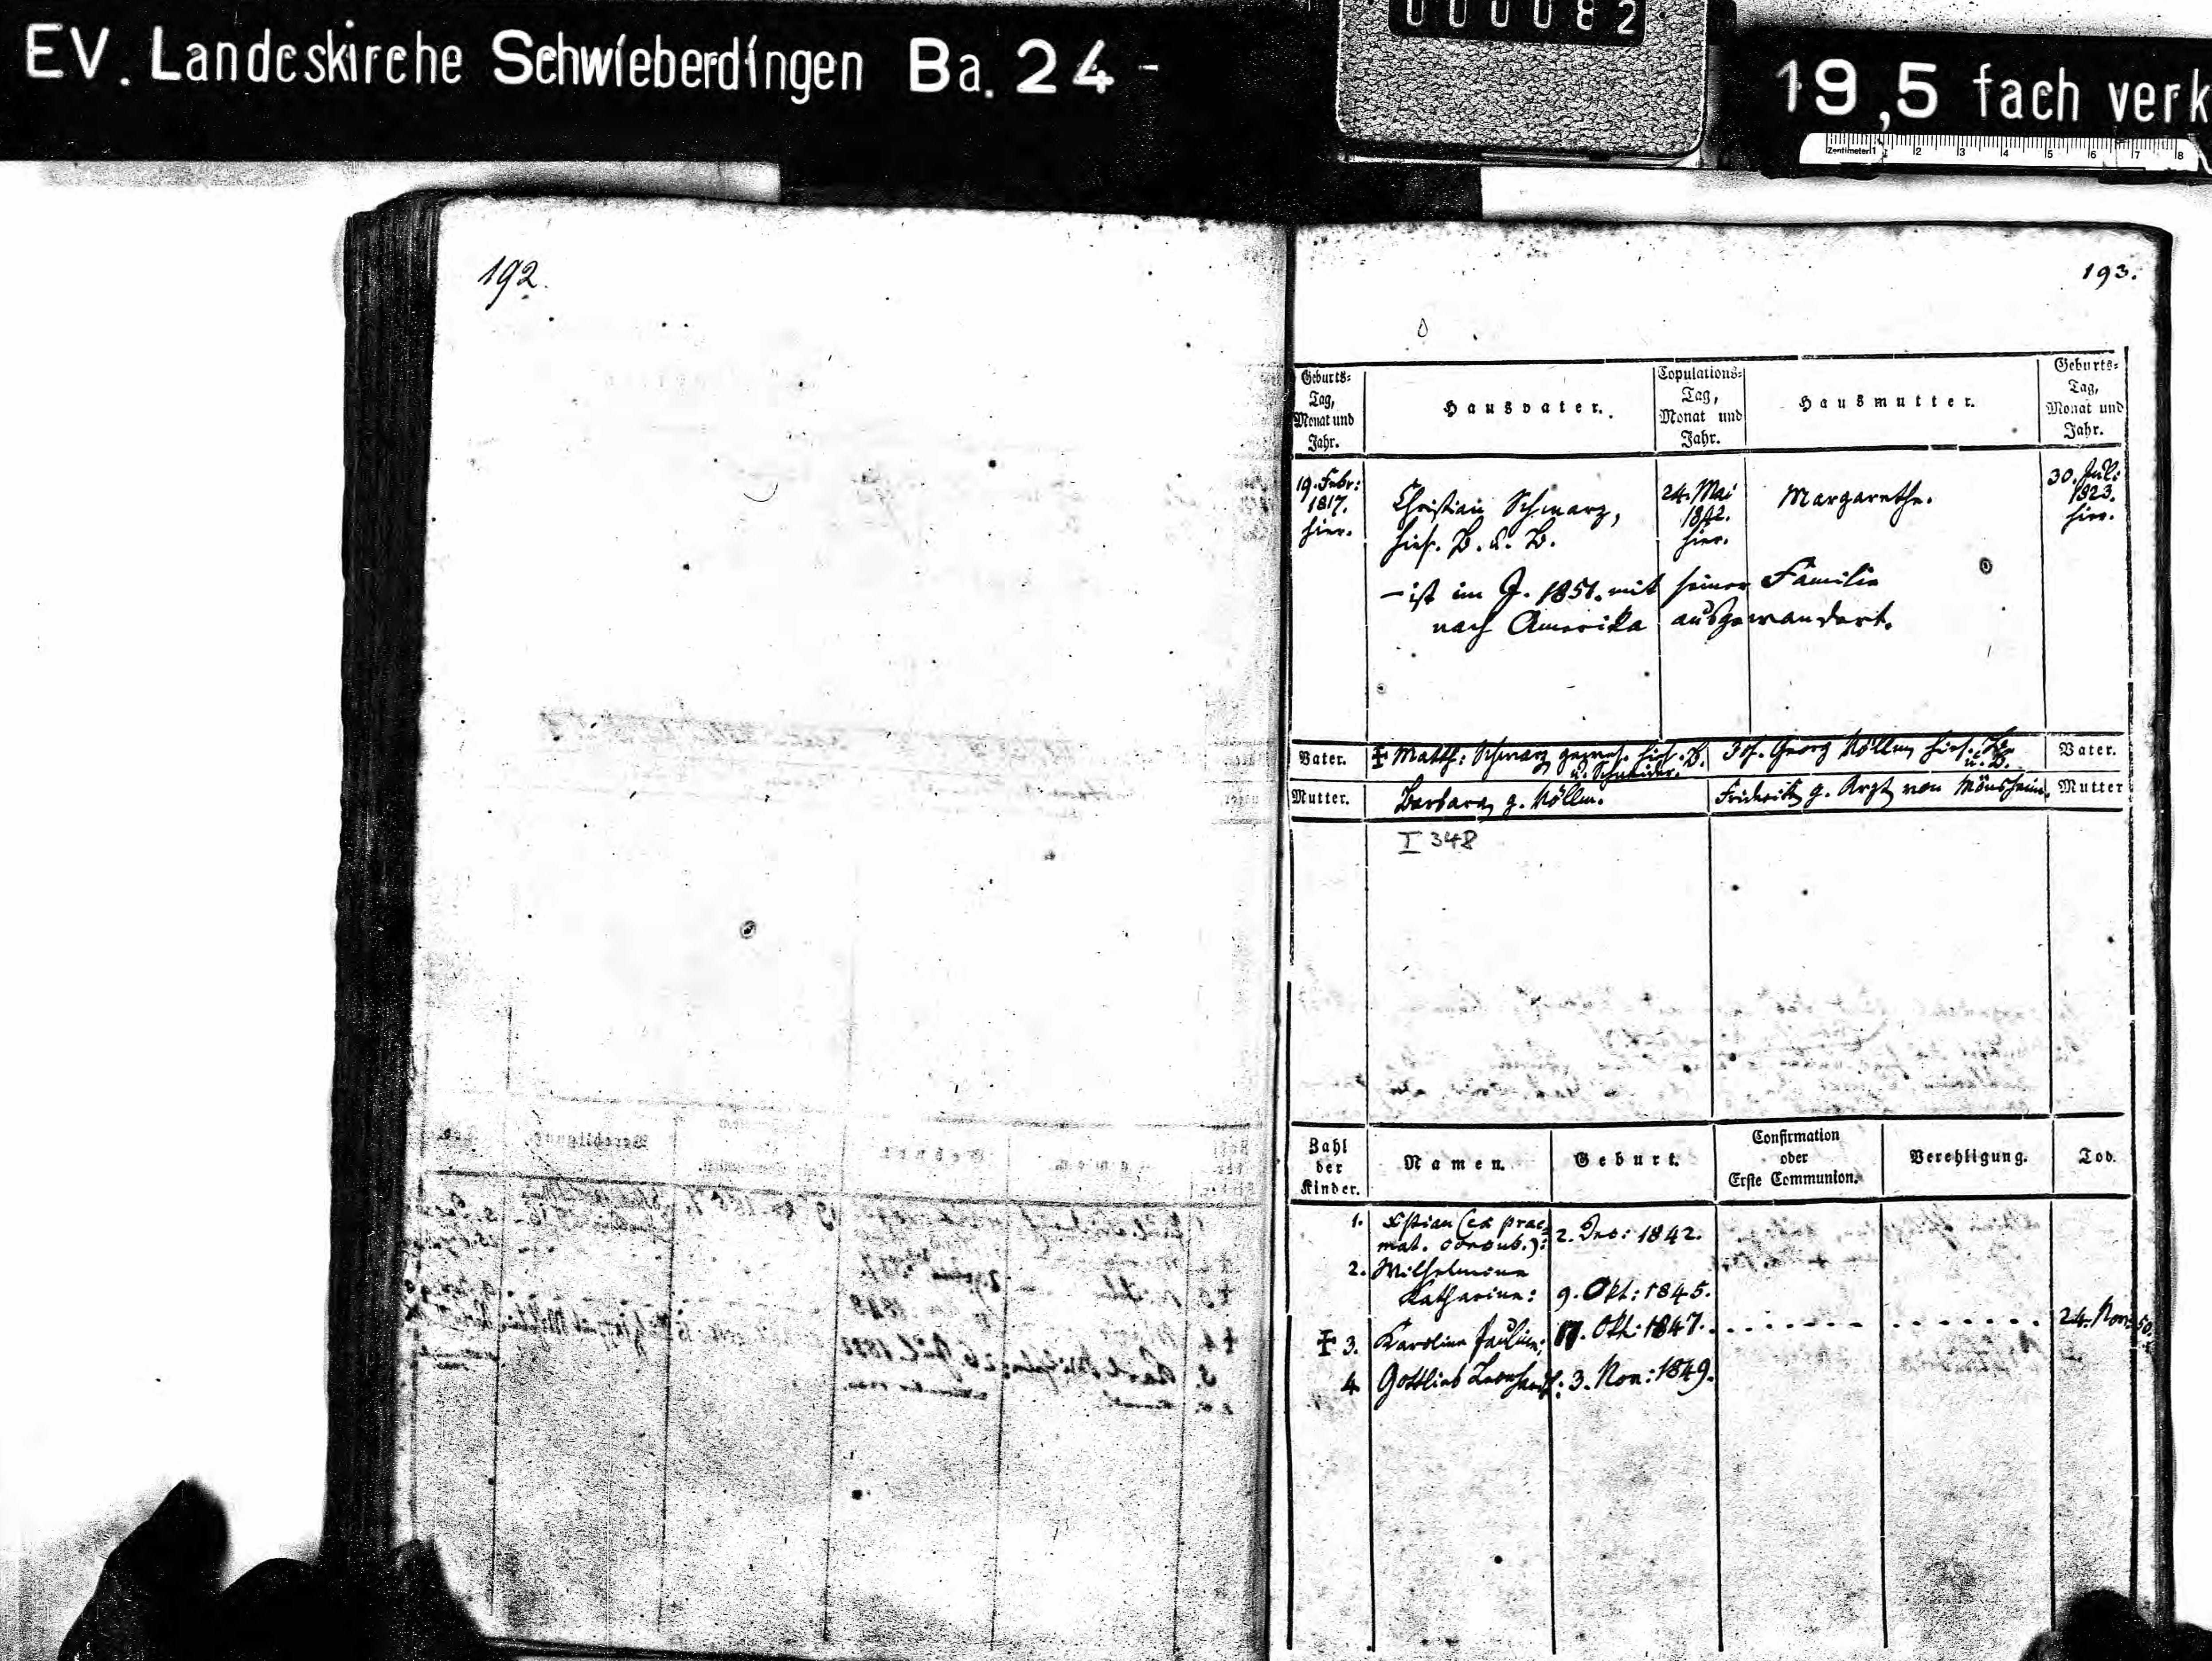 EV. Landeskirche Schwieberdingen Ba. 24 -
000082
19,5 fach verk
Zentimeter 1 2 3 4 5 6 7 8
192.
193.
Geburts-Tag, Monat und Jahr.
Hausvater.
Copulations-Tag, Monat und Jahr.
Hausmutter.
Geburts-Tag, Monat und Jahr.
19. Febr: 1817. hier.
Christian Schwarz,
hies. B. u. B.
24. Mai 1842. hier.
Margarethe.
30. Juli 1823. hier.
– ist im J. 1851. mit seiner Familie
nach Amerika ausgewandert.
Vater.
Matth: Schwarz gewes. hies. B.
u. Schneider.
Joh. Georg Nölle, hies. B.
u. B.
Vater.
Mutter.
Barbara, g. Nölle.
Friderike g. Arzt von Mönsheim.
Mutter
I 348
Zahl der Kinder.
Namen.
Geburt.
Confirmation oder Erste Communion.
Verehligung.
Tod.
1. Xstian (ex prae-
mat. concub.): 2. Dec: 1842.
2. Wilhelmine
Katharine: 9. Okt: 1845.
3. Karoline Pauline: 17. Okt: 1847. . . . . . . . . . . . . . . . 24. Nov: 50.
4. Gottlieb Leonhard: 3. Nov: 1849.